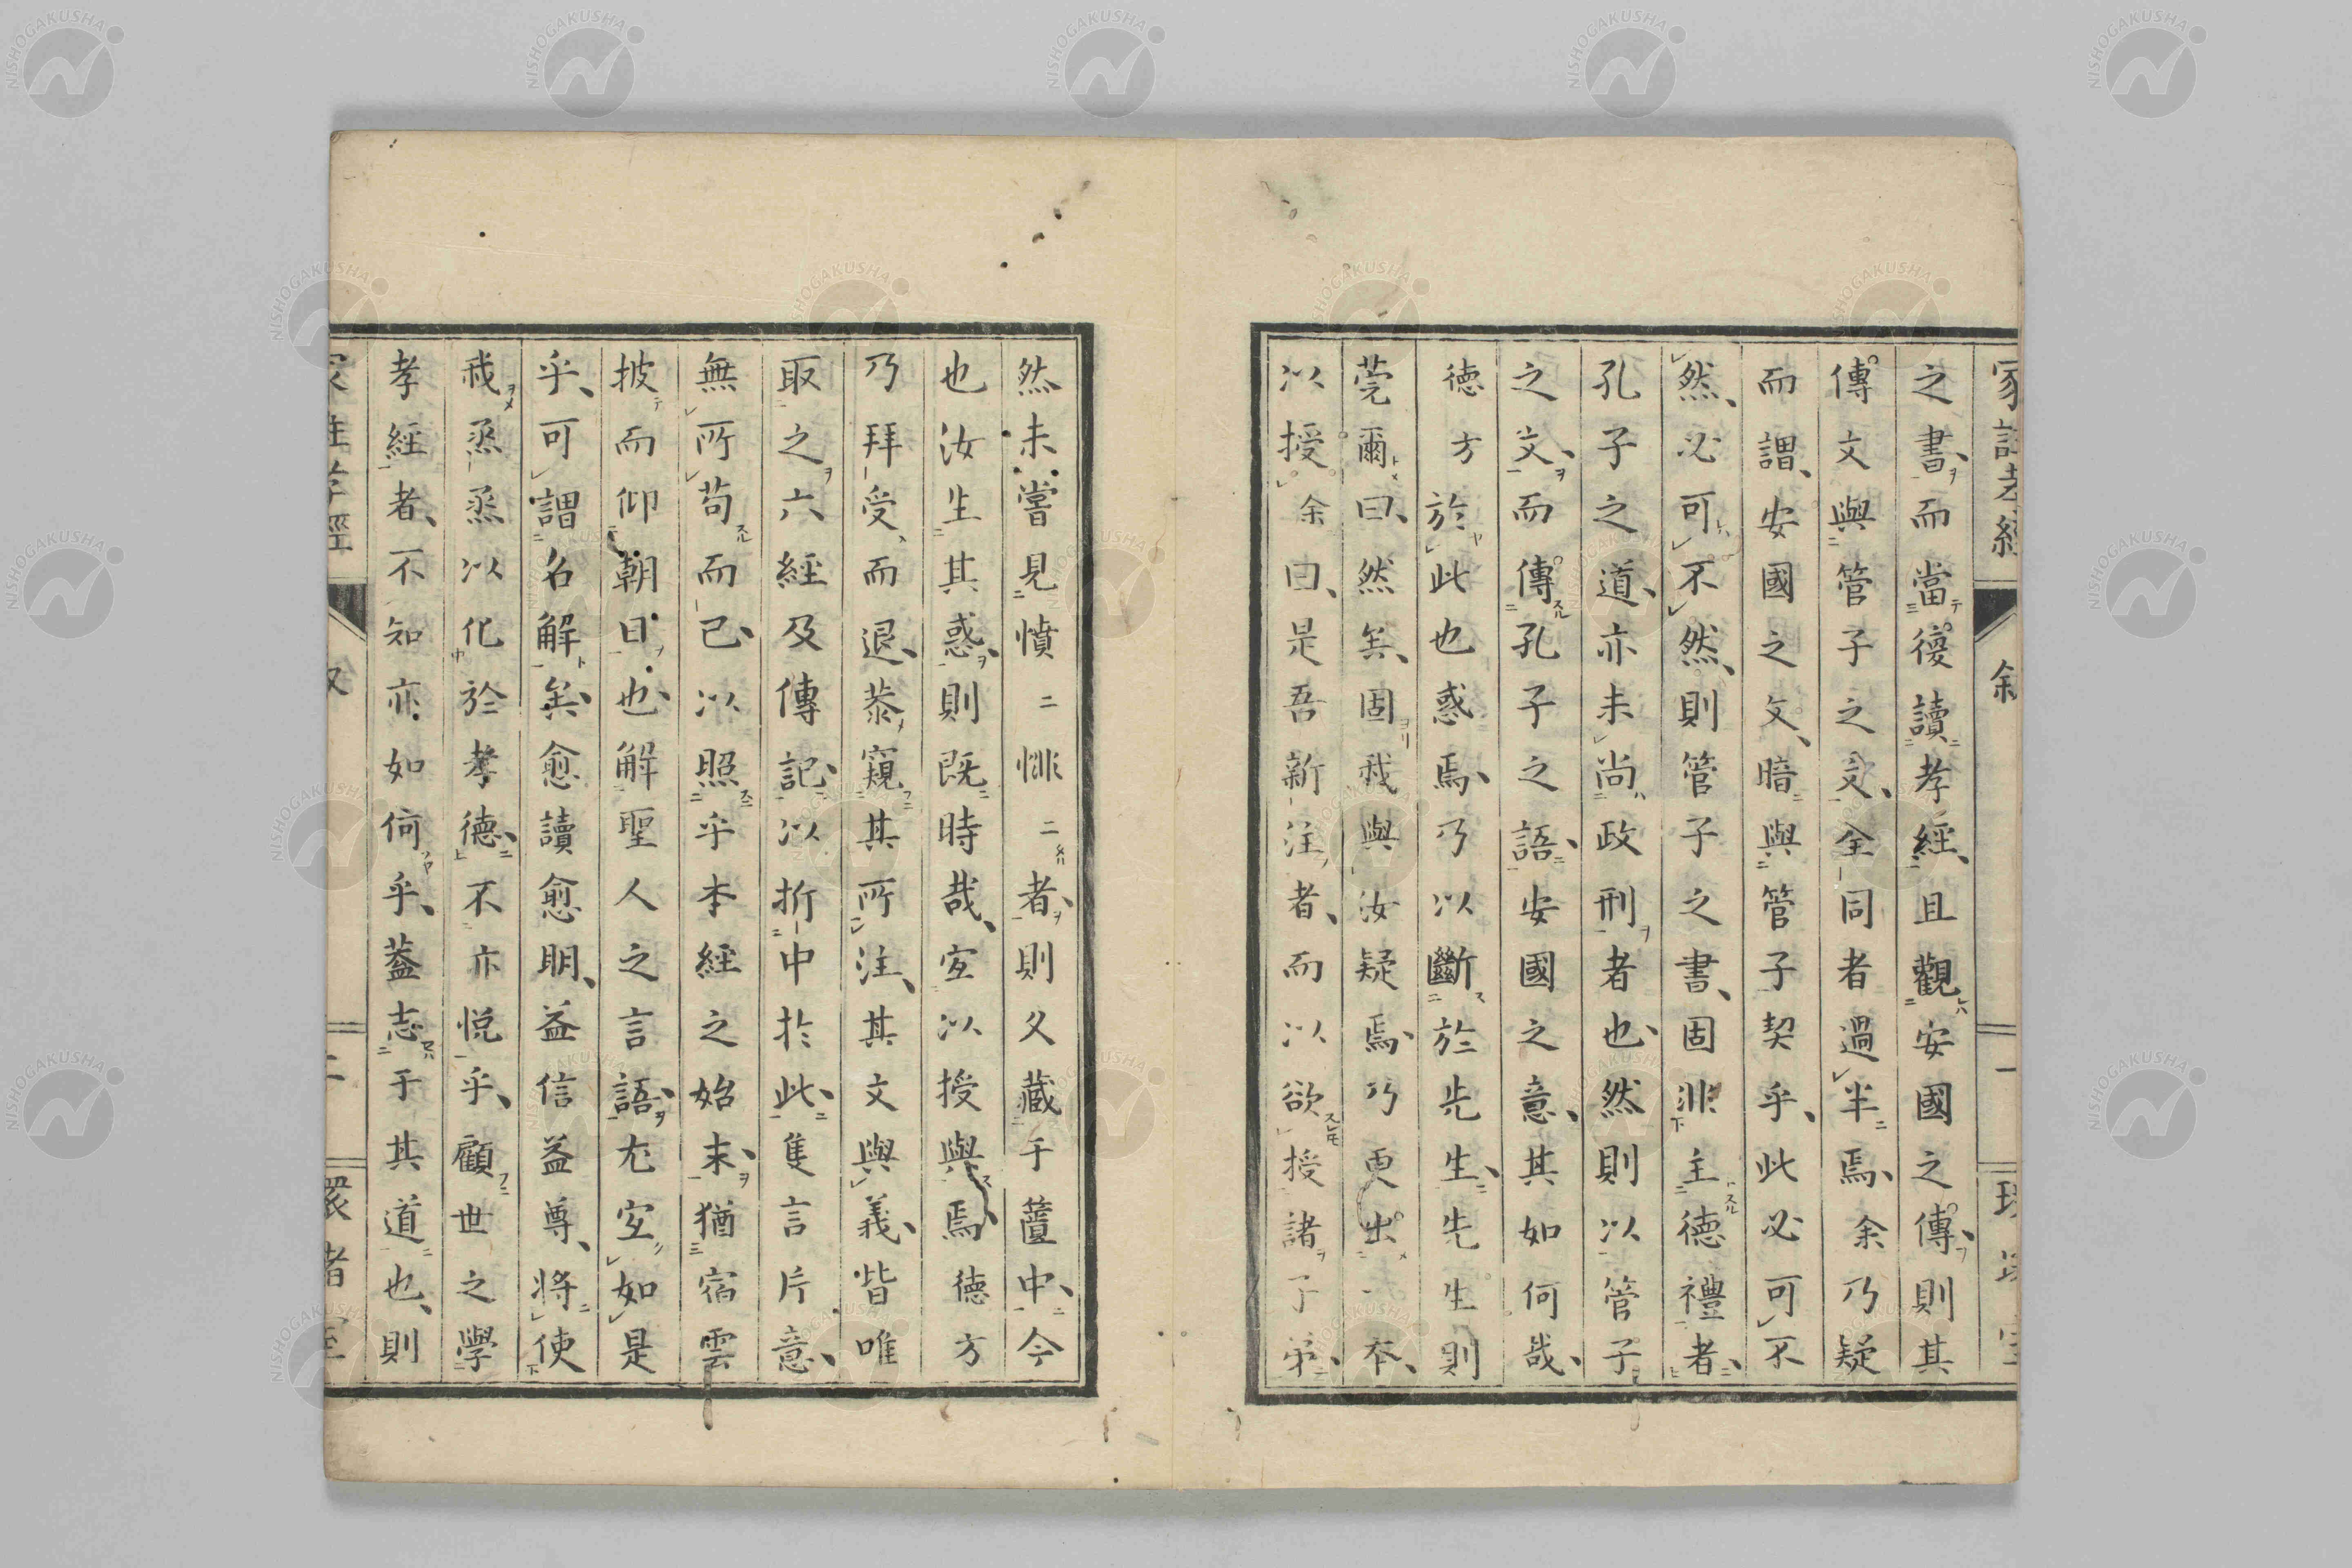 之書而當復讀孝經且觀安國之傳則其
傳文與管子之文全同者過半焉余乃疑
而謂安國之文暗與管子契乎此必可不
然必可不然則管子之書固非主德禮者
孔子之道亦未尚政刑者也然則以管子
之文而傳孔子之語安國之意其如何哉
德方於此也惑焉乃以斷於先生先生則
莞爾曰然矣固我與汝疑焉乃更出一本
以授余曰是吾新注者而以欲授諸子弟
然未嘗見憤二悱二者則久藏于篋中今
也汝生其惑則既時哉宜以授與焉德方
乃拜受而退恭窺其所注其文與義皆唯
取之六經及傳記以折中於此隻言片意
無所苟而已以照乎本經之始末猶宿雲
披而仰朝日也解聖人之言語尤宜如是
乎可謂名解矣愈讀愈明益信益尊將使
我烝烝以化於孝德不亦悅乎顧世之學
孝經者不知亦如何乎蓋志于其道也則
NISHOGAKUSHA